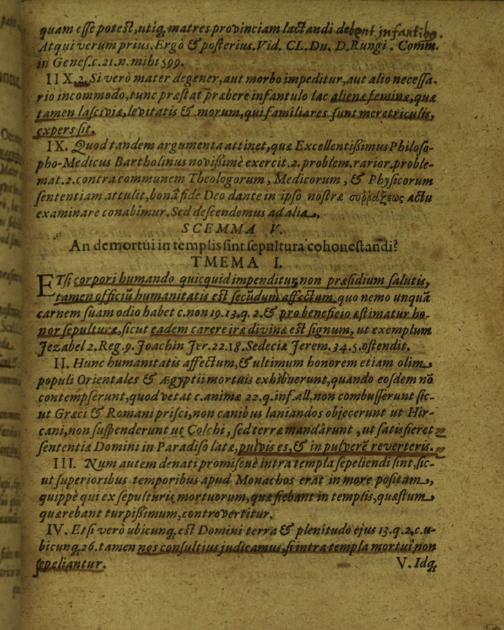 quam esse potest, utiq; matres provinciam lactandi debent infantibo.
Atqui verum prius. Ergò & posterius. Vid. CL. Dn. D. Rungi. Comm.
in Genes. c. 21. n. mihi 599.
IIX. 2. Si verò mater degener, aut morbo impeditur, aut alio necessa-
rio incommodo, tunc præstat præbere infantulo lac alienæ feminæ, quæ
tamen lasciviæ, levitatis & morum, qui familiares sunt meretriculis,
expers sit.
IX. Quod tandem argumenta attinet, quæ Excellentißimus Philoso-
pho-Medicus Bartholinus novißimè exercit. 2. problem. rarior. proble-
mat. 2. contra communem Theologorum, Medicorum, & Physicorum
sententiam attulit, bonâ fide Deo dante in ipso nostræ συῤῥάξεως actu
examinare conabimur. Sed descendemus ad alia.
SCEMMA V.
An demortui in templis sint sepultura cohonestandi?
TMEMA I.
ETsi corpori humando quicquid impenditur, non præsidium salutis,
tamen officiū humanitatis est secūdum affectum, quo nemo unquā
carnem suam odio habet c. non 19. 13. q. 2. & pro beneficio æstimatur ho-
nor sepulturæ, sicut eadem carere iræ divinæ est signum, ut exemplum
Jezabel 2. Reg. 9. Joachin Jer. 22. 18. Sedeciæ Jerem. 34. 5. ostendit.
II. Hunc humanitatis affectum, & ultimum honorem etiam olim
populi Orientales & Ægyptii mortuis exhibuerunt, quando eosdem nō
contempserunt, quod vetat c. animæ 22. q. in f. all, non combusserunt sic-
ut Græci & Romani prisci, non canibus laniandos objecerunt ut Hir-
cani, non suspenderunt ut Colchi, sed terræ mandârunt, ut satisfieret
sententiæ Domini in Paradiso latæ, pulvis es, & in pulverē reverteris.
III. Num autem denati promiscuè intra templa sepeliendi sint, sic-
ut superioribus temporibus apud Monachos erat in more positam,
quippè qui ex sepulturis mortuorum, quæ fiebant in templis, quæstum
quærebant turpißimum, controvertitur.
IV. Etsi verò ubicunq; est Domini terra & plenitudo ejus 13. q. 2. c. u-
bicunq; 26. tamen nos consultius judicamus, si intra templa mortui non
sepeliantur.
V. Idq;